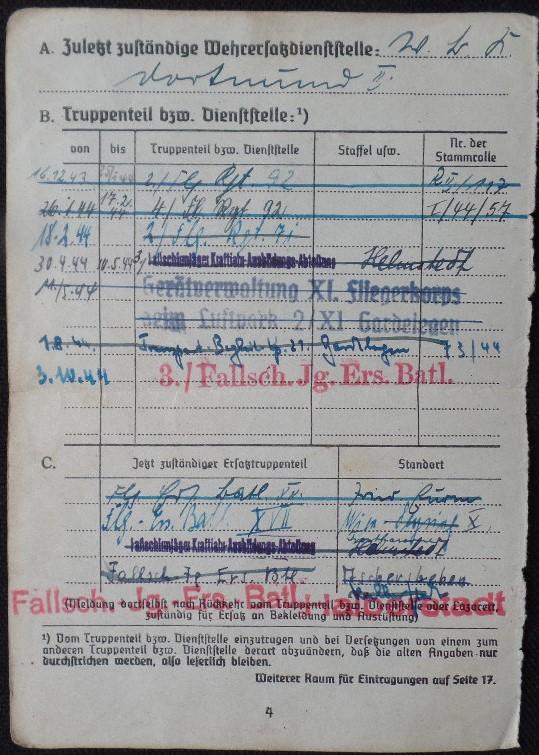 A. Zuletzt zuständige Wehrersatzdienststelle: W. B. K.
Dortmund II
B. Truppenteil bzw. Dienststelle:¹)
von bis Truppenteil bzw. Dienststelle Staffel usw. Nr. der Stammrolle
16.12.43 2./Flg. Rgt. 92
26.1.44 17.2.44 4./Flg. Rgt. 92 I/44/57
18.2.44 2/Flg. Rgt. 71
30.4.44 10.5.44 3/ Fallschirmjäger Kraftfahr-Ausbildungs-Abteilung Helmstedt
11/5.44 Gerätverwaltung XI. Fliegerkorps
beim Luftpark 2/XI Gardelegen
1.8.44. Gardelegen 73/44
3.10.44 3./Fallsch. Jg. Ers. Batl.
C. Jetzt zuständiger Ersatztruppenteil Standort
Flg. Ers. Batl. XV
Flg.-Ers. Batl. XVII Wien
Fallschirmjäger Kraftfahr-Ausbildungs-Abteilung Helmstedt
Fallsch. Jg. Ers. Btl. Aschersleben
Fallsch. Jg. Ers. Batl. Halberstadt
(Meldung dortselbst nach Rückkehr vom Truppenteil bzw. Dienststelle oder Lazarett,
zuständig für Ersatz an Bekleidung und Ausrüstung)
¹) Vom Truppenteil bzw. Dienststelle einzutragen und bei Versetzungen von einem zum
anderen Truppenteil bzw. Dienststelle derart abzuändern, daß die alten Angaben nur
durchstrichen werden, also leserlich bleiben.
Weiterer Raum für Eintragungen auf Seite 17.
4